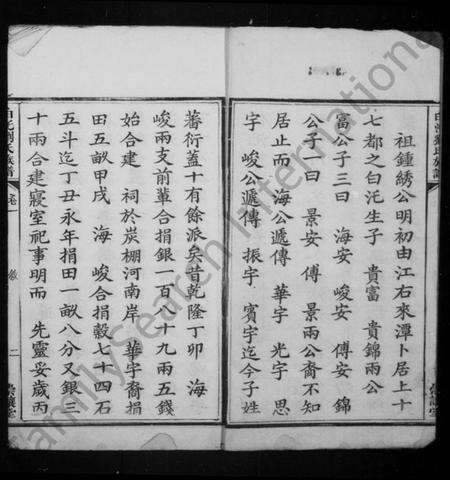 祖鍾綉公明初由江右來潭卜居上十
七都之白沱生子 貴富 貴錦兩公
富公子三曰 海安 峻安 傅安 錦
公子一曰 景安 傅 景兩公裔不知
居止而 海公遞傳 華宇 光宇 思
宇 峻公遞傳 振宇 賓宇迄今子姓
蕃衍蓋十有餘派矣昔乾隆丁卯 海
峻兩支前輩合捐銀一百八十九兩五錢
始合建 祠於炭棚河南岸 華宇裔捐
田五畝甲戌 海 峻合捐穀七十四石
五斗迄丁丑永年捐田一畝八分又銀三
十兩合建寢室祀事明而 先靈妥歲丙
卷一
二
FamilySearch International